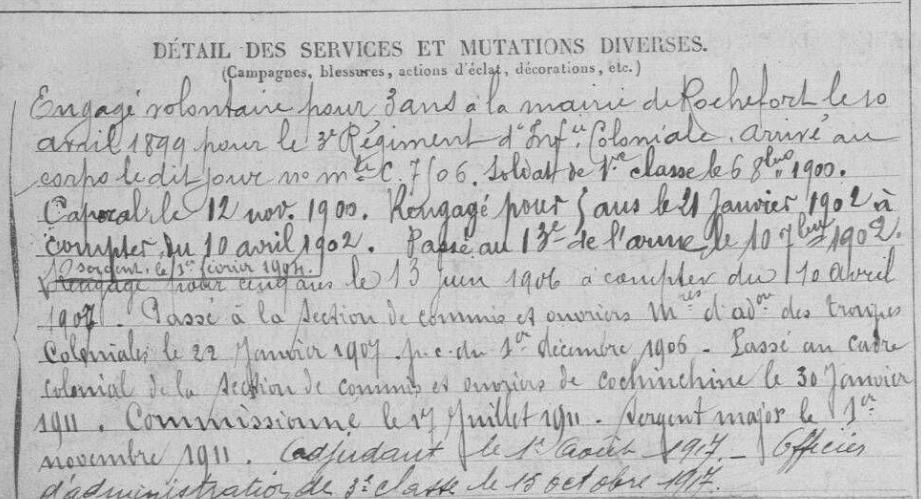 DÉTAIL DES SERVICES ET MUTATIONS DIVERSES.
(Campagnes, blessures, actions d'éclat, décorations, etc.)
Engagé volontaire pour 3 ans à la mairie de Rochefort le 10
avril 1899 pour le 3e Régiment d'Infie Coloniale. arrivé au
corps le dit jour no mle C. 7506. Soldat de 1re classe le 6 8bre 1900.
Caporal le 12 nov. 1900. Rengagé pour 5 ans le 21 Janvier 1902 à
compter du 10 avril 1902. Passé au 13e de l'arme le 10 7bre 1902.
sergent le 1er février 1904.
Rengagé pour cinq ans le 13 juin 1906 à compter du 10 avril
1907. Passé à la Section de commis et ouvriers mres d'adon des troupes
Coloniales le 22 Janvier 1907. p.c. du 1er décembre 1906 - Passé au cadre
colonial de la section de commis et ouvriers de cochinchine le 30 Janvier
1911. Commissionné le 17 Juillet 1911. Sergent major le 1er
novembre 1911. adjudant le 1er août 1917. - Officier
d'administration de 3e classe le 15 octobre 1917.